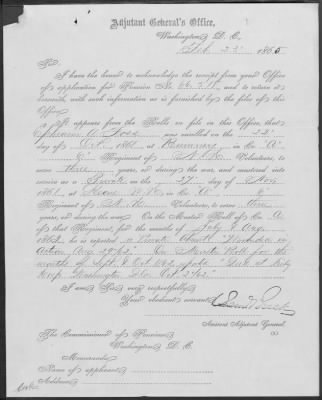 Adjutant General's Office,
Washington, D. C.,
Feb. 22 1865
Sir:
I have the honor to acknowledge the receipt from your Office
of application for Pension No. and to return it
herewith, with such information as is furnished by the files of this
Office.
It appears from the Rolls on file in this Office, that
Ephraim A. was enrolled on the 22
day of Oct., 1861, at in Co. "A"
6" Regiment of N. H. Volunteers, to
serve three years, or during the war, and mustered into
service as a Private on the 27 day of Nov.
1861, at Keene N.H. in Co. "A" 6"
Regiment of N. H. Volunteers, to serve three
years, or during the war. On the Muster Roll of Co. A
of that Regiment, for the months of July & Aug.
1862, he is reported a Private absent "Wounded in
action Aug 29/62". On Muster Roll for the
months of Sept & Oct 1862 "Died at City
Hosp. Washington Oct. 2/62."
I am, Sir, very respectfully,
Your obedient servant,
Assistant Adjutant General.
The Commissioner of Pensions,
Washington, D. C.
Memoranda:
Name of applicant,
Address,